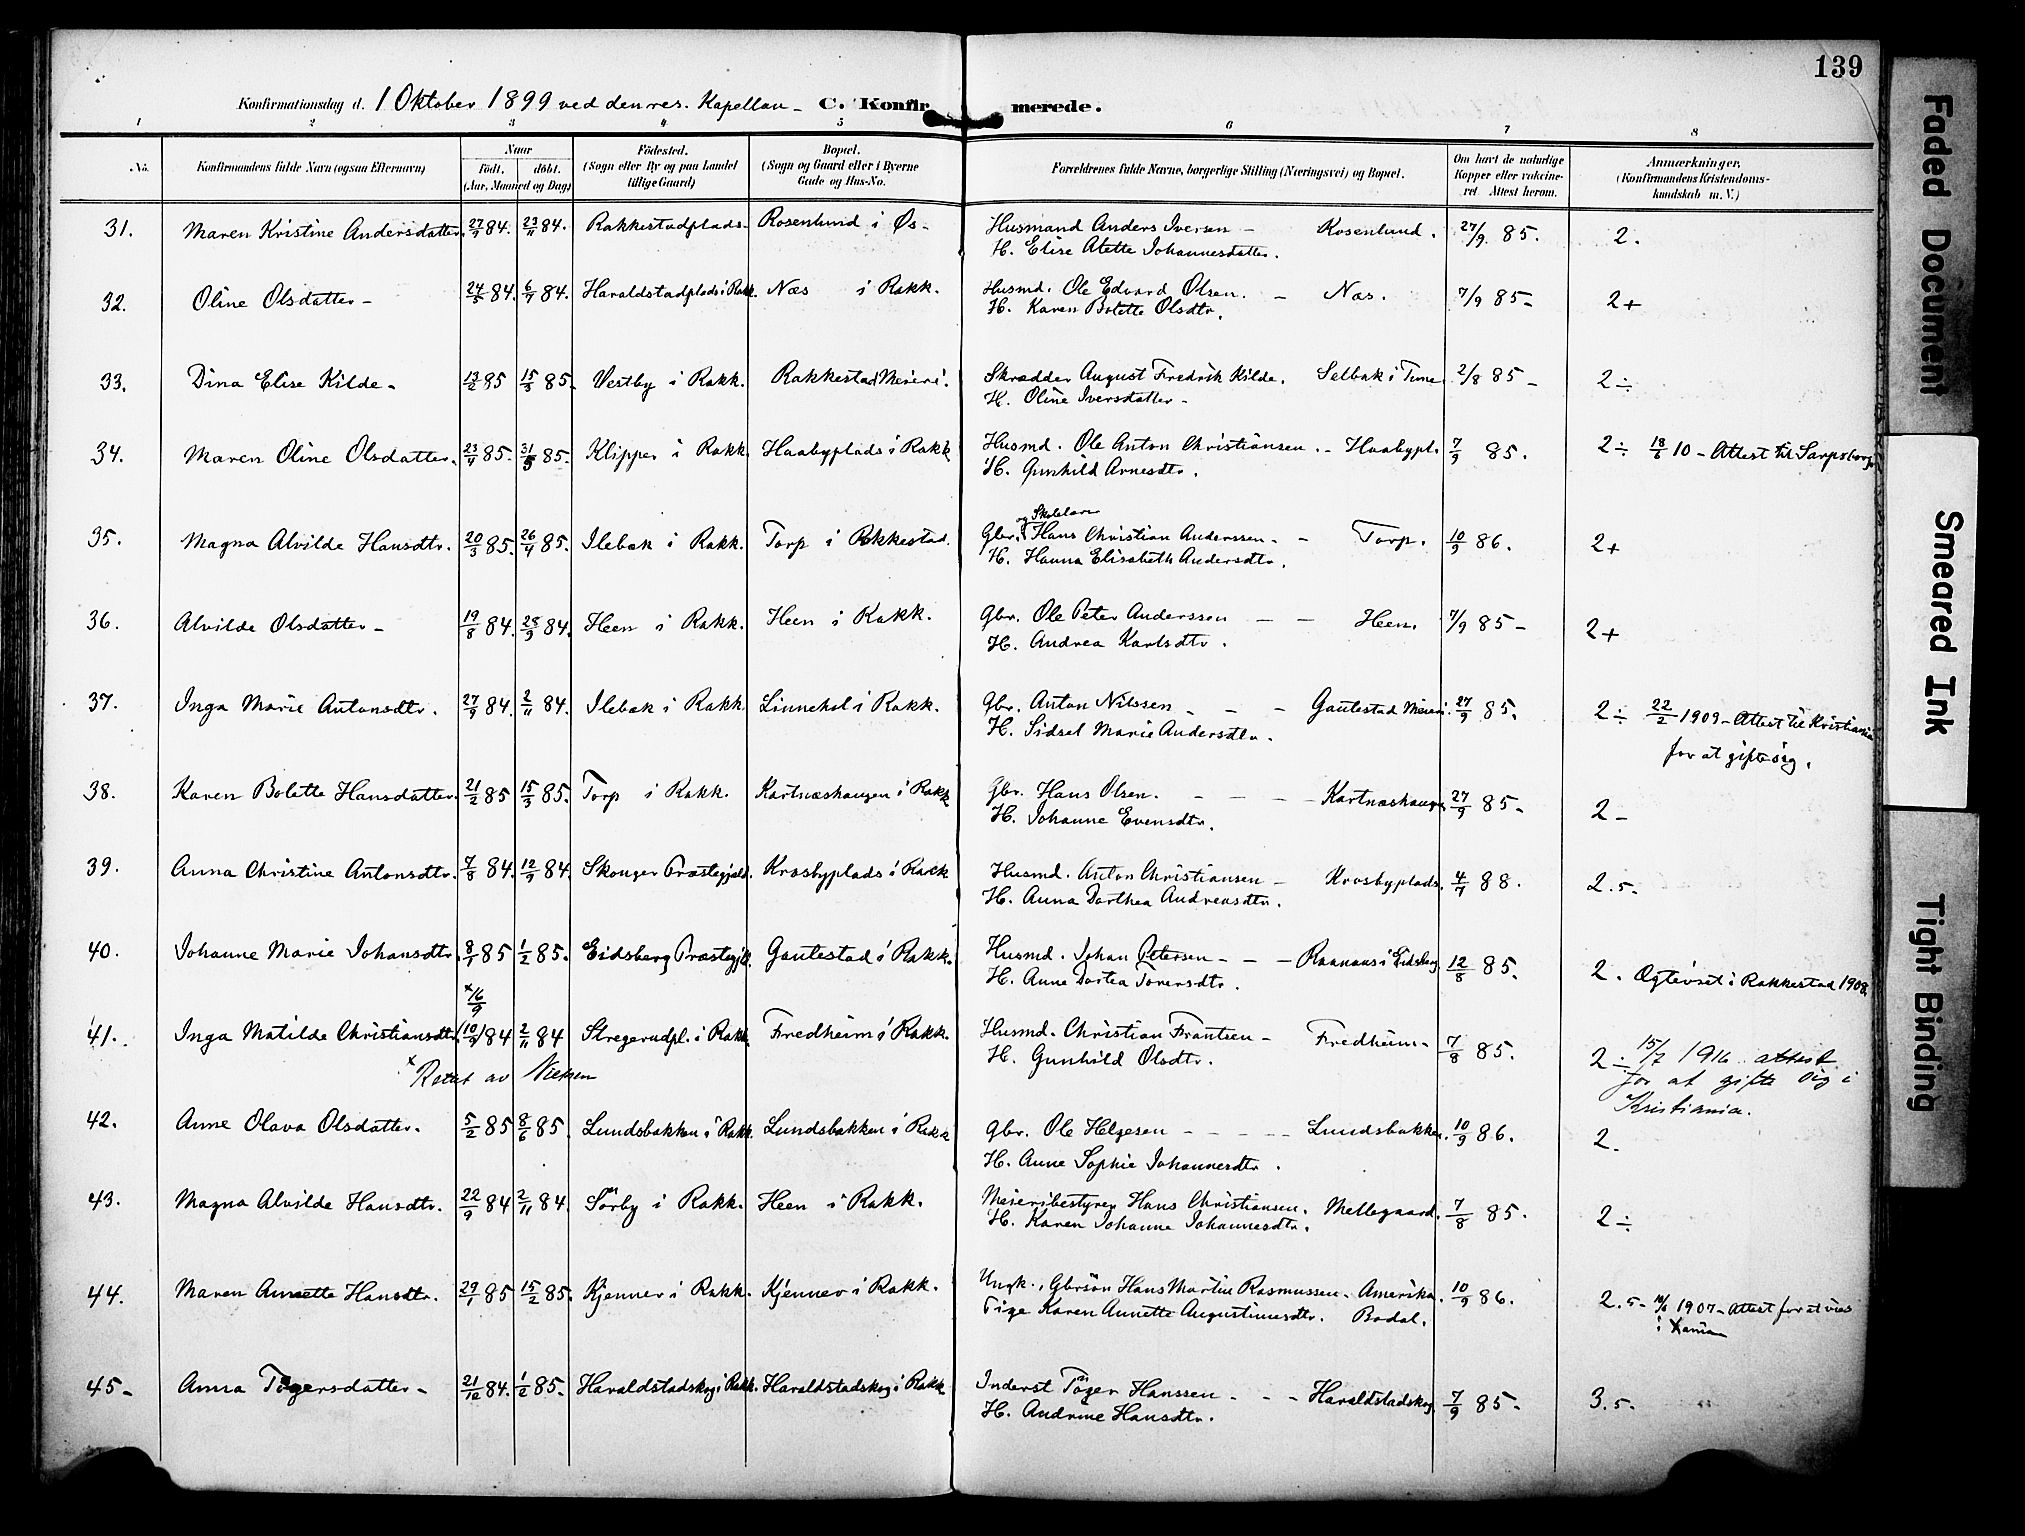 139
Konfirmationsdag d. 1 Oktober 1899 ved den res. Kapellan – C. Konfirmerede.
1 2 3 4 5 6 7 8
No. Konfirmandens fulde Navn (ogsaa Efternavn) Naar født. døbt. (Aar, Maaned og Dag) Fødested. (Sogn eller By og paa Landet tillige Gaard) Bopæl. (Sogn og Gaard eller i Byerne Gade og Hus-No. Forældrenes fulde Navne, borgerlige Stilling (Næringsvei) og Bopæl. Om havt de naturlige Kopper eller vakcineret. Attest herom. Anmærkninger, (Konfirmandens Kristendomskundskab m. V.)
31. Maren Kristine Andersdatter. 27/9 84. 23/11 84. Rakkestadplads. Rosenlund i Øs – Husmand Anders Iversen – Rosenlund. 27/9. 85. 2.
H. Elise Alette Johannesdatter.
32. Oline Olsdatter – 84. 6/7 84. Haraldstadplads i Rakk. Næs i Rakk. Husmd. Ole Edvard Olsen. – Næs. 7/9 85 – 2+
H. Karen Bolette Olsdtr.
33. Dina Elise Kilde – 13/2 85 15/3 85 – Vestby i Rakk. Rakkestad Meieri. Skrædder August Fredrik Kilde. Selbak i Tune 2/8 85 – 2÷
H. Oline Iversdatter –
34. Maren Oline Olsdatter. 23/4 85. 31/5 85. Klipper i Rakk. Haabyplads i Rakk Husmd. Ole Anton Christiansen. – Haabypl. 7/9 85. 2÷ 18/6 10 – Attest til Sarpsborg
H. Gunhild Arnesdtr.
og Skolelærer
35. Magna Alvilde Hansdtr. 20/3 85. 26/4 85. Ilebæk i Rakk. Torp i Rakkestad. Gbr. Hans Christian Anderssen – – Torp. 10/9 86. 2+
H. Hanna Elisabeth Andersdtr.
36. Alvilde Olsdatter – 19/8 84. 28/9 84. Heen i Rakk. Heen i Rakk. Gbr. Ole Peter Anderssen – – Heen. 7/9 85 – 2+
H. Andrea Karlsdtr.
37. Inga Marie Antonsdtr. 27/9 84. 2/11 84. Ilebæk i Rakk. Linnekol i Rakk. Gbr. Anton Nilssen – – – Gautestad Meieri. 27/9 85. 2÷ 22/2 1909 – Attest til Kristiania
H. Sidsel Marie Andersdtr.
for at gifte sig.
38. Karen Bolette Hansdatter. 21/2 85 15/3 85. Torp i Rakk. Kartnæshaugen i Rakk Gbr. Hans Olsen. – – – – Kartnæshaugen 27/9 85 – 2 –
H. Johanne Evensdtr.
39. Anna Christine Antonsdtr. 7/8 84. 12/9 84. Skouger Præstegjeld. Krosbyplads i Rakk Husmd. Anton Christiansen – Krosbyplads. 4/7 88. 2.5 –
H. Anna Dorthea Andreasdtr.
40. Johanne Marie Johansdtr. 8/1 85 1/2 85. Eidsberg Præstegjld. Gautestad i Rakk. Husmd. Johan Petersen – – – Raanaas i Eidsberg 12/8 85. 2. Ægteviet i Rakkestad 1908.
H. Anne Dortea Toversdtr.
x 16/9
41. Inga Matilde Christiansdtr. (10/9) 84 2/11 84 Stregerudpl. i Rakk. Fredheim i Rakk. Husmd. Christian Frantsen – Fredheim – 7/8 85. 2÷ 15/7 1916 attest
H. Gunhild Olsdtr.
for at gifte sig i
x Rettet av Nielsen
Kristiania.
42. Anne Olava Olsdatter. 5/2 85 8/6 85. Lundsbakken i Rakk. Lundsbakken i Rakk Gbr. Ole Helgesen – – – – – Lundsbakken. 10/9 86. 2.
H. Anne Sophie Johannesdtr.
43. Magna Alvilde Hansdtr. 22/9 84 2/11 84. Sørby i Rakk. Heen i Rakk. Meieribestyrer Hans Christiansen. Mellegaard. 7/8 85. 2÷
H. Karen Johanne Johannesdtr.
44. Maren Annette Hansdtr. 29/1 85 15/2 85. Kjenner i Rakk. Kjenner i Rakk. Ungk., Gbrsøn Hans Martin Rasmussen – Amerika. 10/9 86. 2.5 – 1907 – Attest for at vies
Pige Karen Annette Augustinusdtr. Bodal.
i Xania
45 – Anna Tøgersdatter – 21/10 84. 1/2 85 – Haraldstadskog i Rakk. Haraldstadskog i Rakk Inderst Tøger Hanssen – – – Haraldstadskog. 7/9 85 – 3.5 –
H. Andrine Hansdtr.
Faded Document
Smeared Ink
Tight Binding